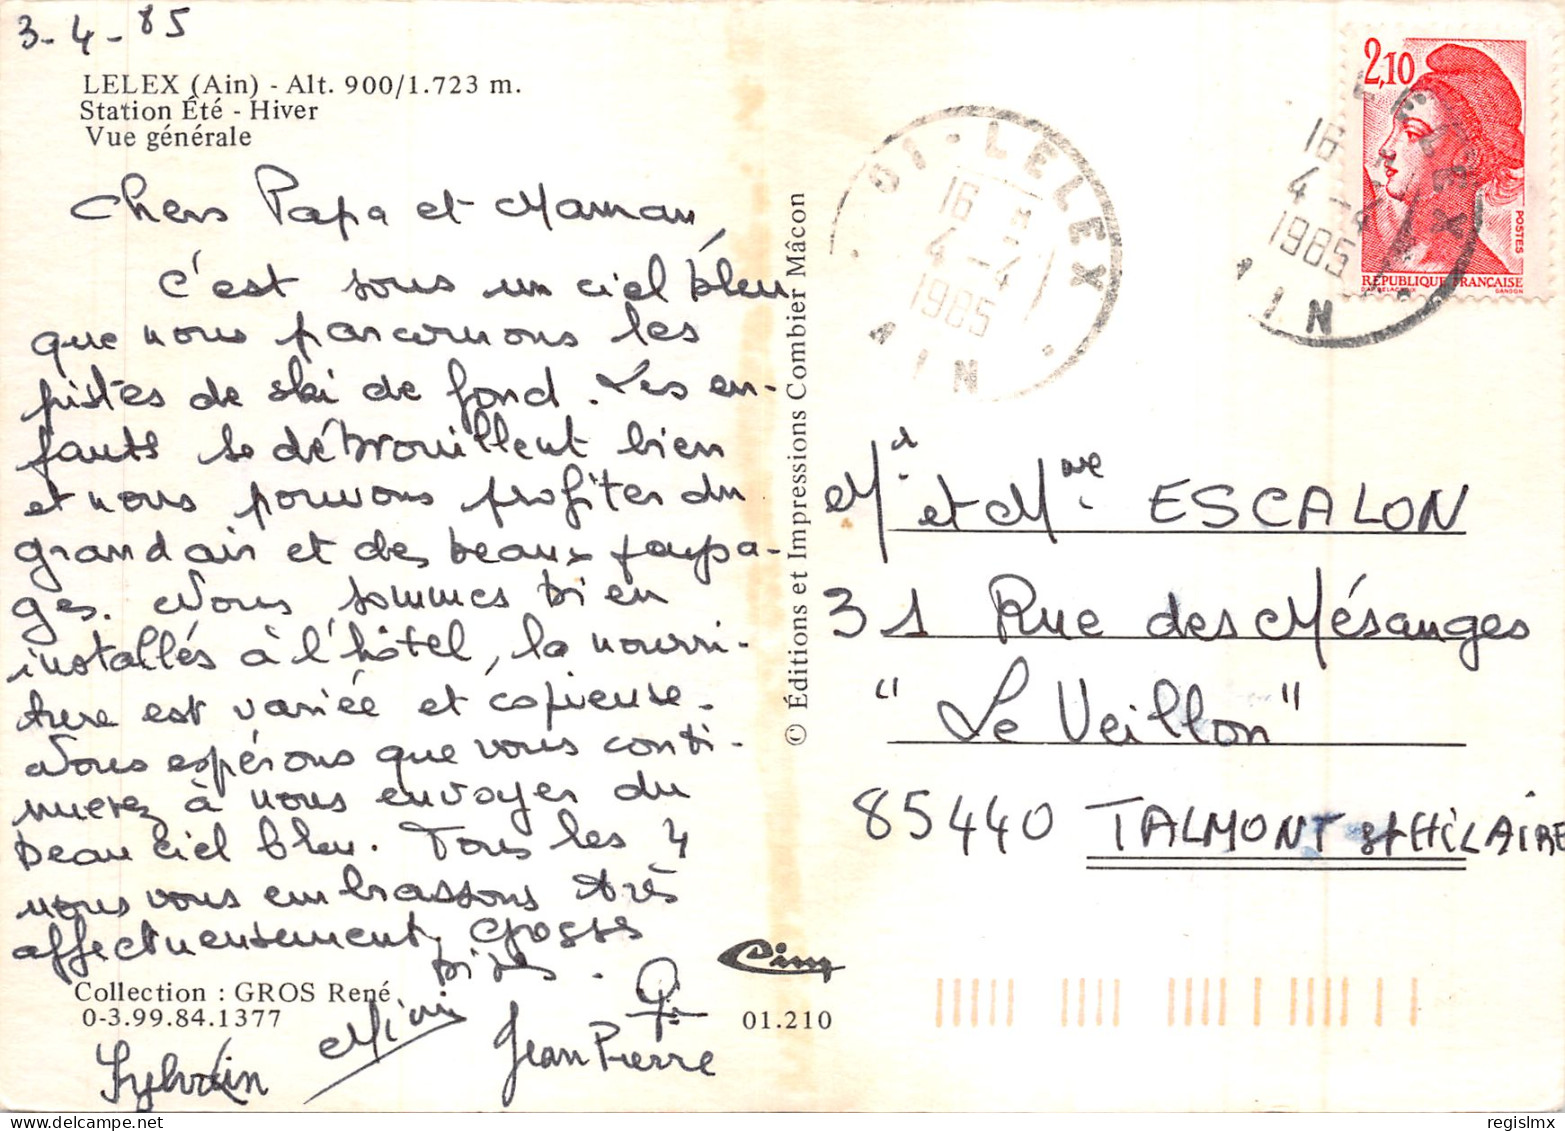 3-4-85
LELEX (Ain) - Alt. 900/1.723 m.
Station Été - Hiver
Vue générale
Chers Papa et Maman,
C'est sous un ciel bleu
que nous parcourons les
pistes de ski de fond. Les en-
fants se débrouillent bien
et nous pouvons profiter du
grand air et des beaux paysa-
ges. Nous sommes bien
installés à l'hôtel, la nourri-
ture est variée et copieuse.
Nous espérons que vous conti-
nuerez à nous envoyer du
beau ciel bleu. Tous les 4
nous vous embrassons très
affectueusement, grosses
bises.
Mimi
Jean Pierre
Sylvain
Collection : GROS René
0-3.99.84.1377
Cim
01.210
© Éditions et Impressions Combier Mâcon
01-LELEX
16 H
4-4
1985
AIN
2,10
POSTES
RÉPUBLIQUE FRANÇAISE
D'AP. DELACROIX GANDON
LELEX
16 H
4-4
1985
AIN
Mr et Mme ESCALON
31 Rue des Mésanges
"Le Veillon"
85440 TALMONT St HILAIRE
regislmx